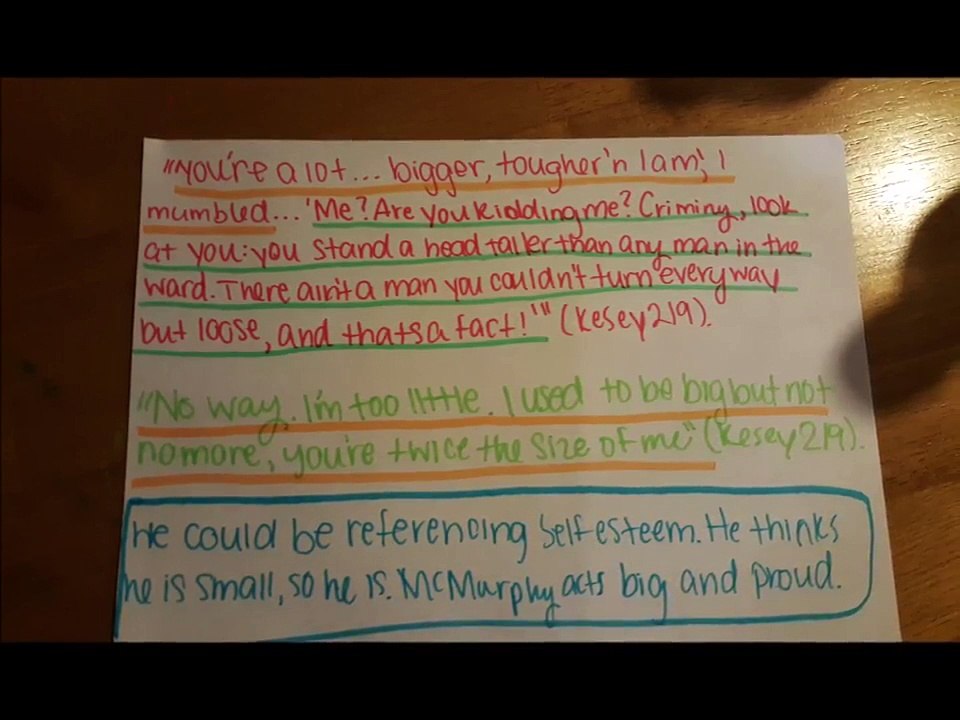 "You're a lot... bigger, tougher'n I am,' I
mumbled... 'Me? Are you kidding me? Criminy, look
at you: you stand a head taller than any man in the
ward. There ain't a man you couldn't turn every way
but loose, and thats a fact!'" (Kesey 219).
"No way. I'm too little. I used to be big but not
no more, you're twice the size of me" (Kesey 219).
He could be referencing self-esteem. He thinks
he is small, so he is. McMurphy acts big and proud.